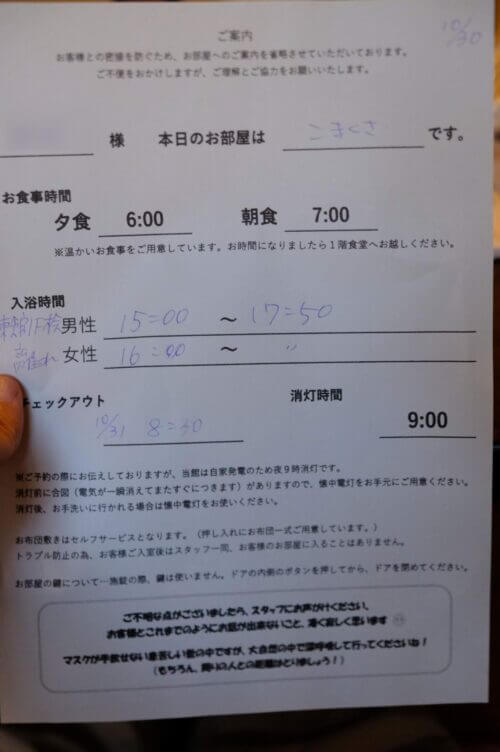 ご案内
10/30
お客様との密接を防ぐため、お部屋へのご案内を省略させていただいております。
ご不便をおかけしますが、ご理解とご協力をお願いいたします。
様 本日のお部屋は こまくさ です。
お食事時間
夕食 6:00 朝食 7:00
※温かいお食事をご用意しています。お時間になりましたら1階食堂へお越しください。
入浴時間
男性 15:00 ～ 17:50
女性 16:00 ～ 〃
チェックアウト 消灯時間
10/31 8:30 9:00
※ご予約の際にお伝えしておりますが、当館は自家発電のため夜9時消灯です。
消灯前に合図（電気が一瞬消えてまたすぐにつきます）がありますので、懐中電灯をお手元にご用意ください。
消灯後、お手洗いに行かれる場合は懐中電灯をお使いください。
お布団敷きはセルフサービスとなります。（押し入れにお布団一式ご用意しています。）
トラブル防止の為、お客様ご入室後はスタッフ一同、お客様のお部屋に入ることはありません。
お部屋の鍵について…施錠の際、鍵は使いません。ドアの内側のボタンを押してから、ドアを閉めてください。
ご不明な点がございましたら、スタッフにお声がけください。
お客様とこれまでのようにお話が出来ないこと、凄く寂しく思います
マスクが手放せない息苦しい世の中ですが、大自然の中で深呼吸して行ってくださいね！
（もちろん、周りの人との距離はとりましょう！）